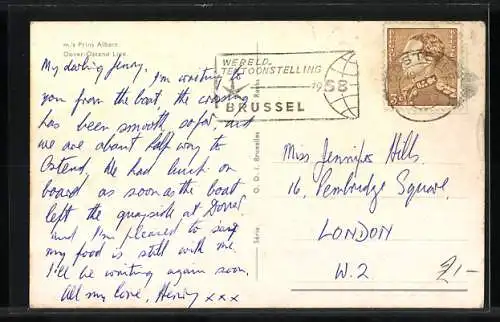 m/s Prins Albert
Dover-Ostend Line
My darling Jenny, I'm writing to
you from the boat, the crossing
has been smooth so far, and
we are about half way to
Ostend, We had lunch on
board as soon as the boat
left the quayside at Dover
and I'm pleased to say
my food is still with me.
I'll be writing again soon.
All my love, Henry x x x
WERELD-
TENTOONSTELLING
1958
BRUSSEL
Miss Jennifer Hills.
16, Pembridge Square.
LONDON
W. 2
£1-
Série
O. D. I. Bruxelles